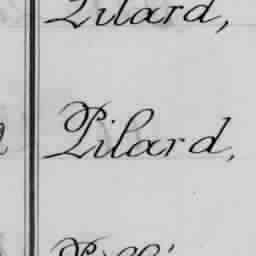 Pilard,
Pilard,